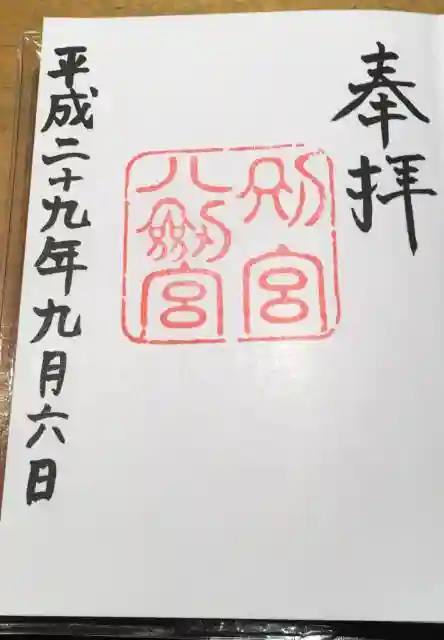 奉拝
別宮
八劔宮
平成二十九年九月六日